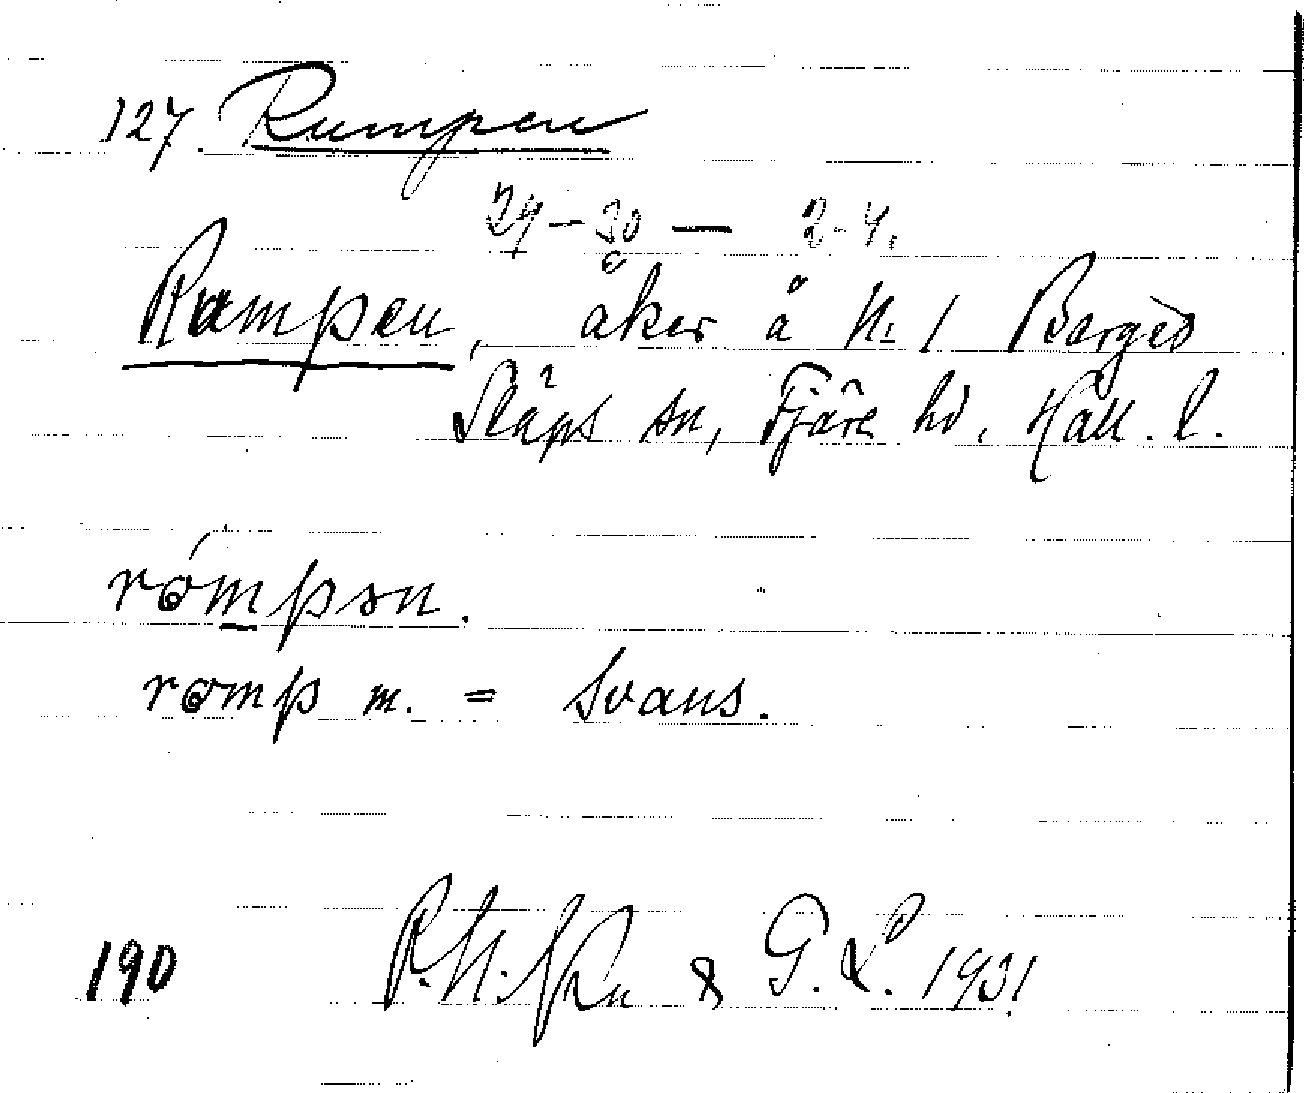 127. Rumpen
29-30 — 2-4.
Rumpen, åker å N. 1 Barges
Släps sn, Fjäre hd, Hall. l.
rómpən.
romp m. = svans.
190 & G. L. 1931